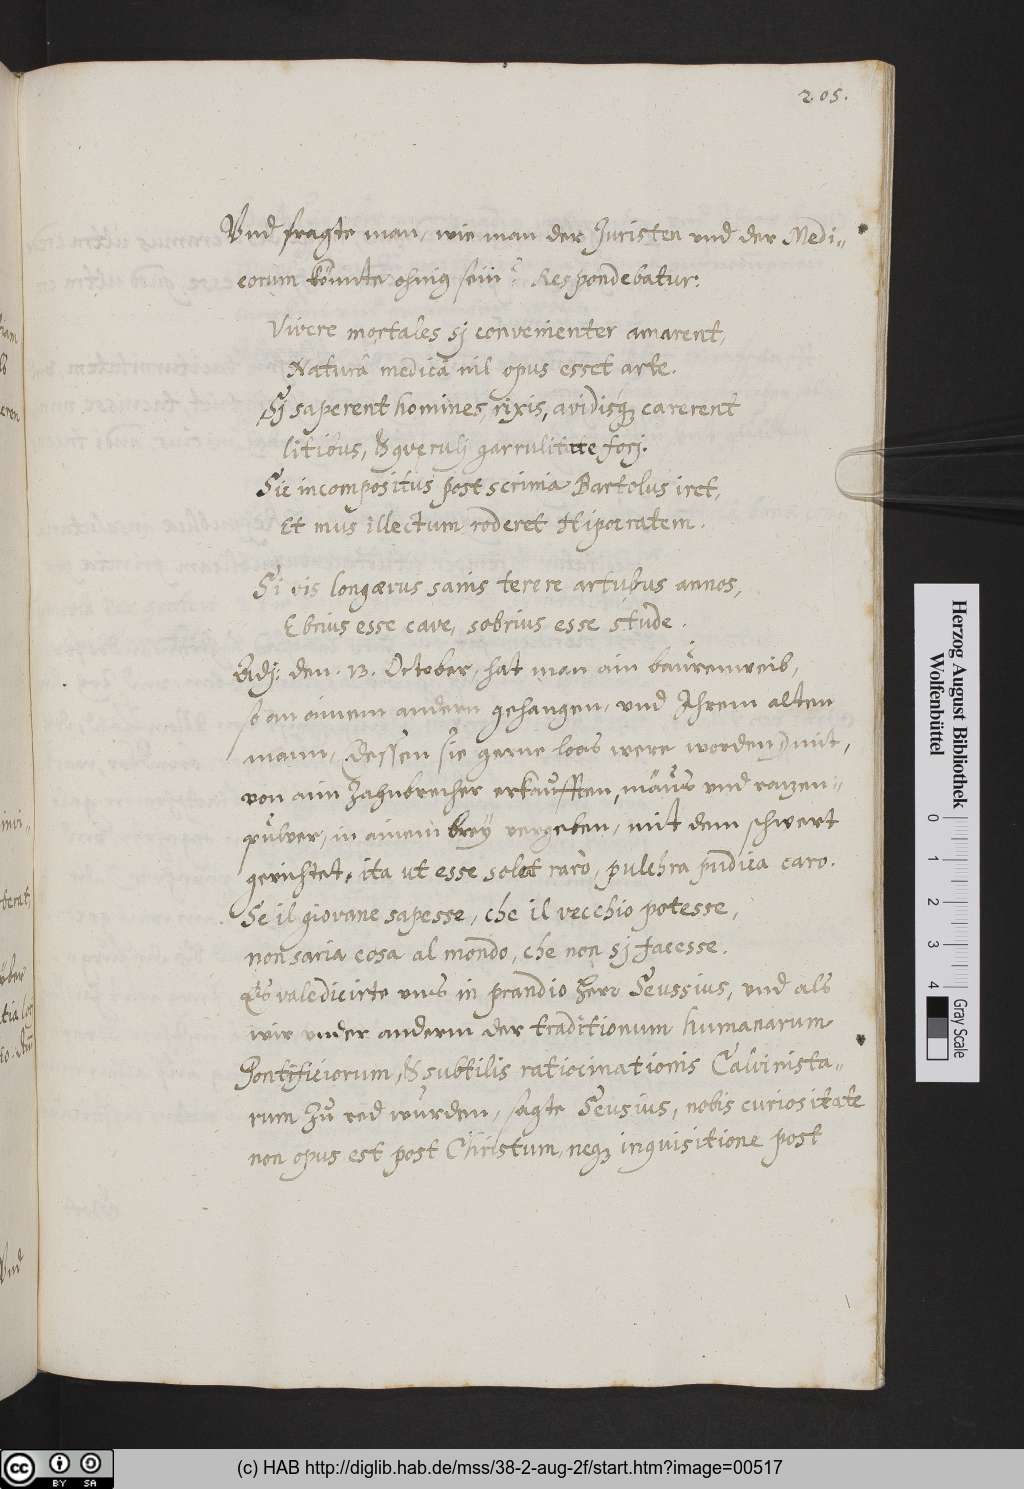 205.
Vnd fragte man, wie man der Juristen und der Medi=
corum könnte ohnig sein? Respondebatur:
Vivere mortales sj convenienter amarent,
Naturâ medicâ nil opus esset arte.
Sj saperent homines, rixis, avidisq; carerent
litibus, & querulj garrulitate forj.
Sic incompositus post scrinia Bartolus iret,
Et mus illectum roderet Hipocratem.
Si vis longævus sanis terere artubus annos,
Ebrius esse cave, sobrius esse stude.
Eidj: den. 13. October, hat man ain baürenweib,
so an ainem andern gehangen, und Ihrem alten
mann, (dessen sie gerne loos were worden) mit,
von aim Zahnbrecher erkaufften, mäüs und razen=
pülver, in ainem brey vergeben, mit dem schwert
gerichtet, ita ut esse solet raro, pulchra pudica caro.
Se il giovane sapesse, che il vecchio potesse,
non saria cosa al mondo, che non sj facesse.
Es valedicirte uns in prandio Herr Seussius, und als
wir under anderm der traditionum humanarum
Pontificiorum, & subtilis ratiocinationis Calvinista=
rum Zü red würden, sagte Seusius, nobis curiositate
non opus est post Christum, neq; inquisitione post
Herzog August Bibliothek
Wolfenbüttel
0 1 2 3 4
Gray Scale
cc BY SA
(c) HAB http://diglib.hab.de/mss/38-2-aug-2f/start.htm?image=00517